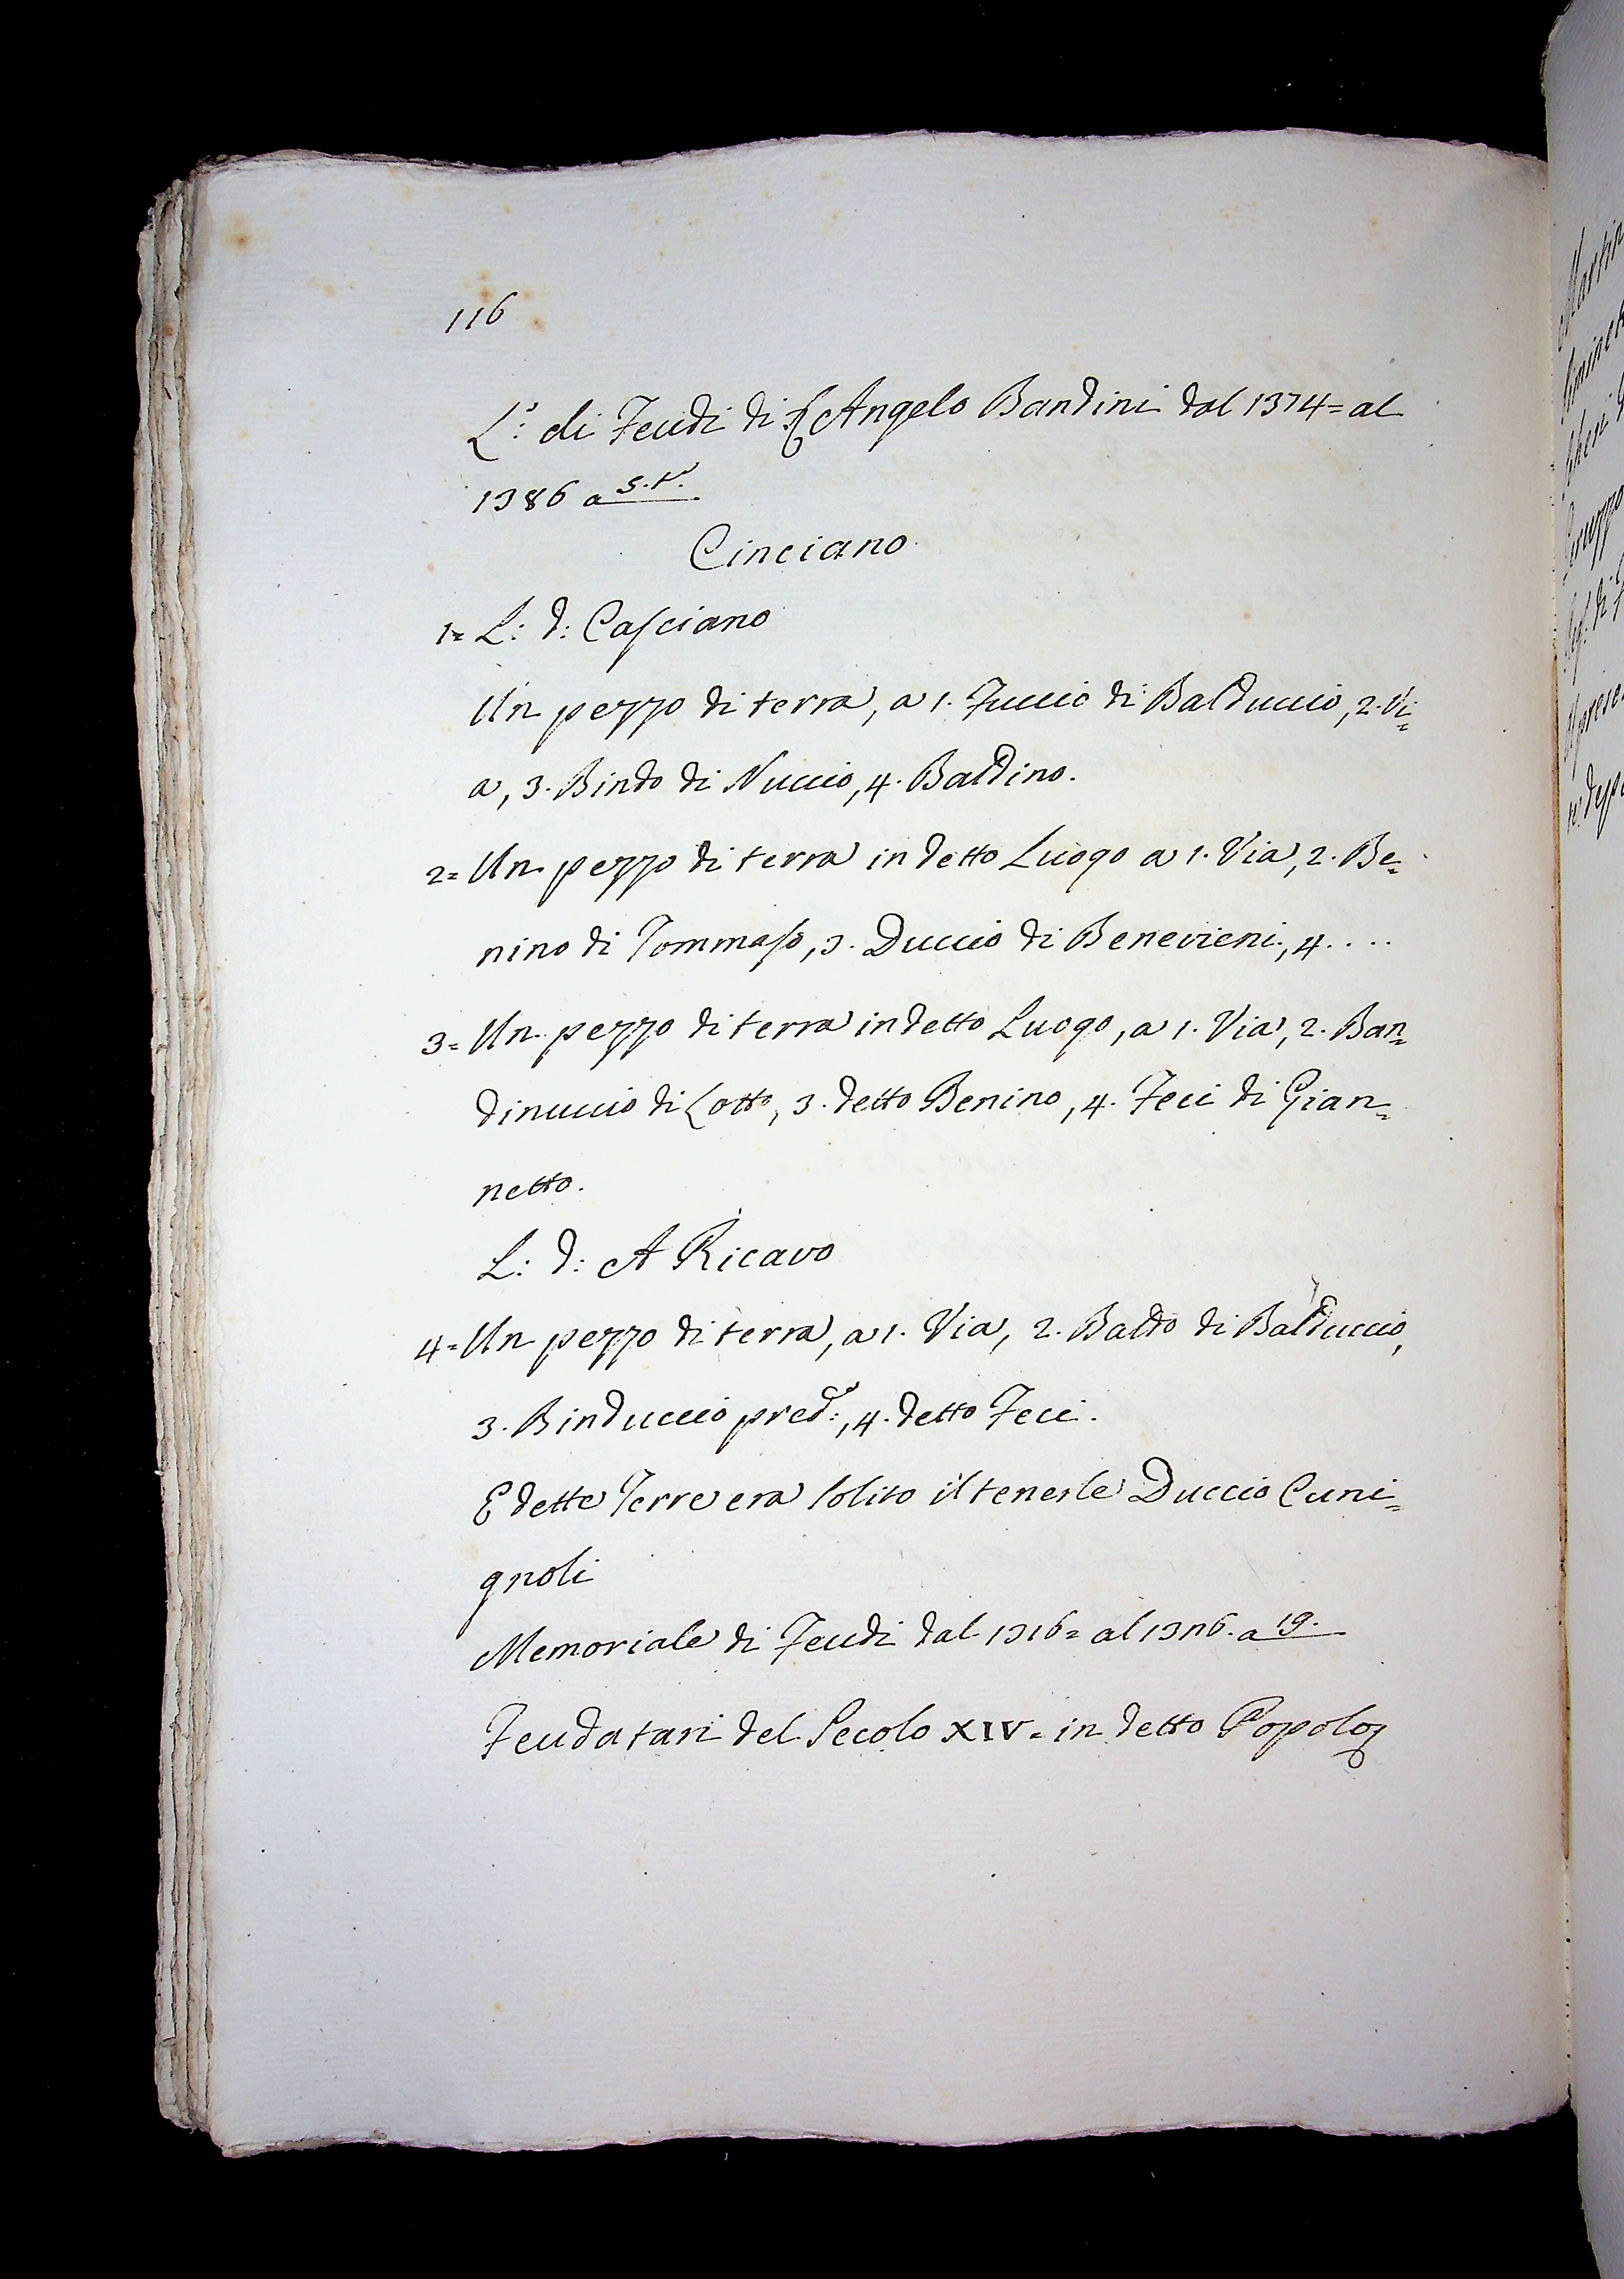 116
L.º di Feudi di S Angelo Bandini dal 1374= al
1386 a s.tº.
Cinciano
1= L: d: Casciano
Un pezzo di terra, a 1. Fuccio di Balduccio, 2. Vi=
a, 3. Bindo di Nuccio, 4. Baldino.
2= Un pezzo di terra in detto Luogo a 1. Via, 2. Be=
nino di Tommaso, 3. Duccio di Benevieni, 4....
3= Un pezzo di terra in detto Luogo, a 1. Via, 2. Ban=
dinuccio di Lotto, 3. detto Benino, 4. Feci di Gian=
netto.
L: d: A Ricavo
4= Un pezzo di terra, a 1. Via, 2. Baldo di Balduccio,
3. Binduccio pred.º, 4. detto Feci.
E dette Terre era solito il tenerle Duccio Cuni=
gnoli
Memoriale di Feudi dal 1316= al 1376. a 19.
Feudatari del Secolo XIV. in detto Popolo